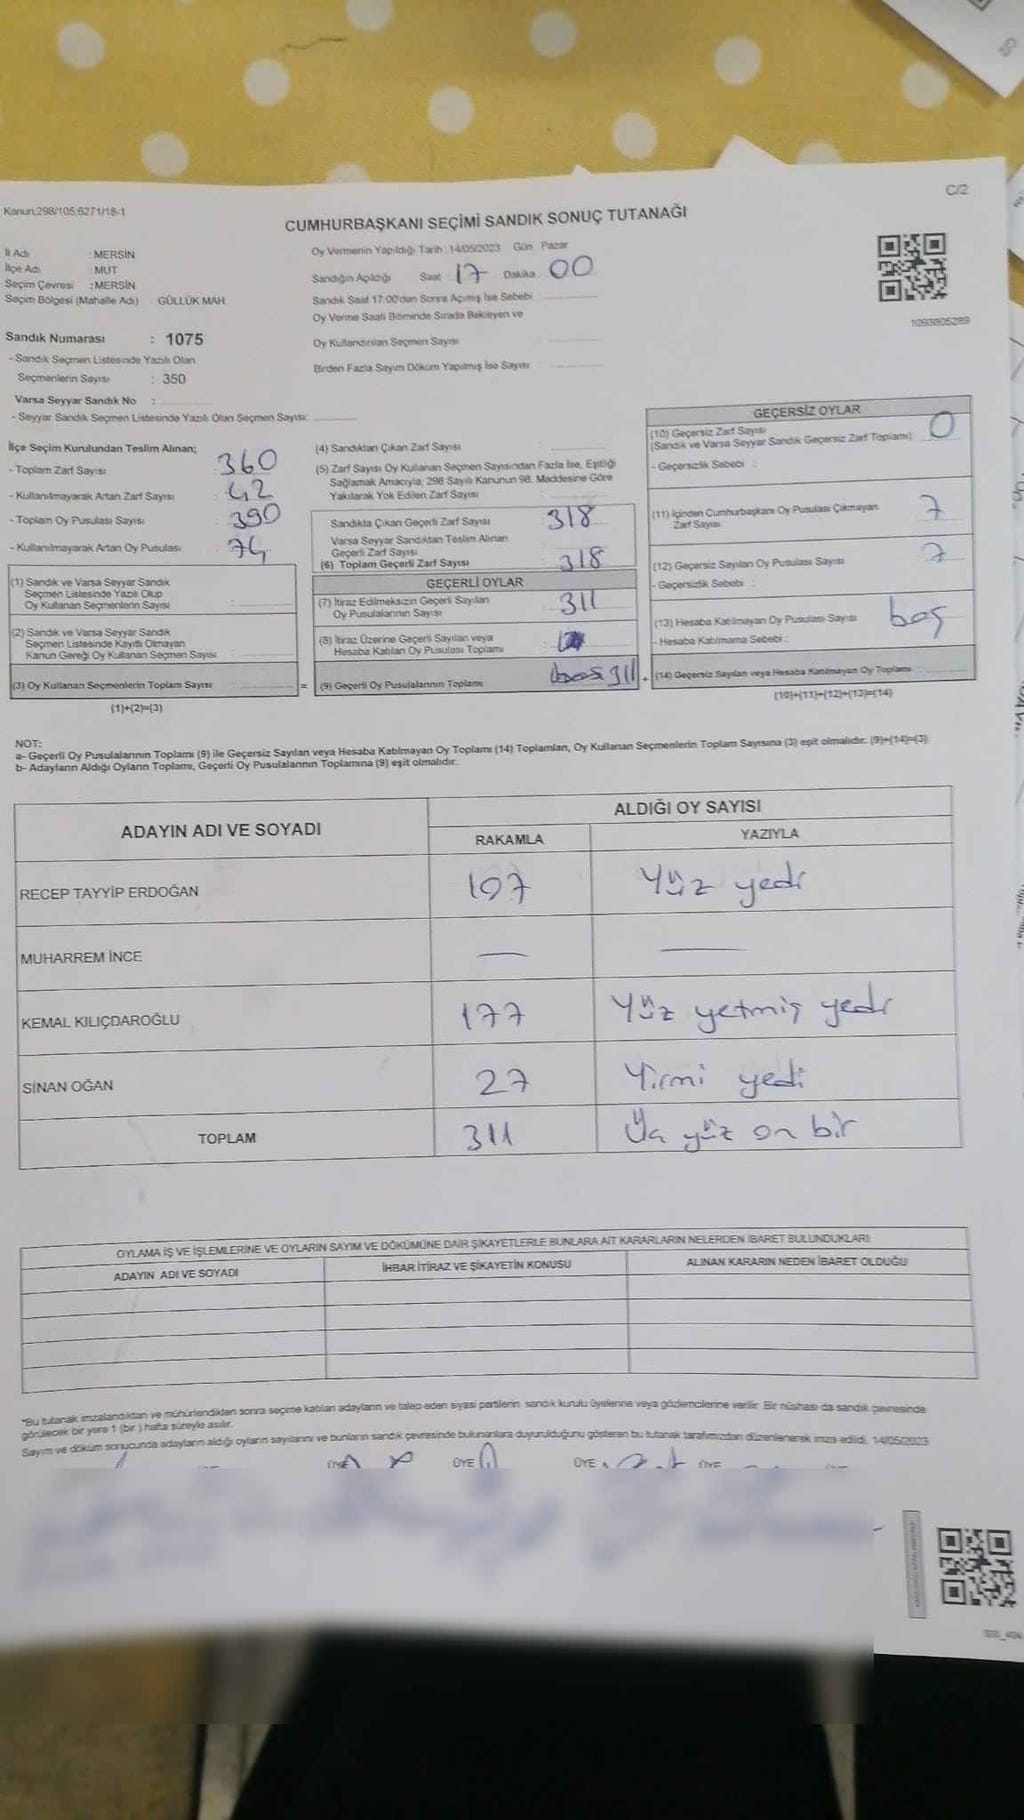 C/2
Kanun,298/105,6271/18-1
CUMHURBAŞKANI SEÇİMİ SANDIK SONUÇ TUTANAĞI
İl Adı : MERSİN
İlçe Adı : MUT
Seçim Çevresi : MERSİN
Seçim Bölgesi (Mahalle Adı) GÜLLÜK MAH.
Oy Vermenin Yapıldığı Tarih :14/05/2023 Gün Pazar
Sandığın Açıldığı Saat 17 Dakika 00
Sandık Saat 17:00'den Sonra Açımış İse Sebebi
Oy Verme Saati Bitiminde Sırada Bekleyen ve
Oy Kullandırılan Seçmen Sayısı
Birden Fazla Sayım Döküm Yapılmış İse Sayısı
1093805289
Sandık Numarası : 1075
- Sandık Seçmen Listesinde Yazılı Olan
Seçmenlerin Sayısı : 350
Varsa Seyyar Sandık No :
- Seyyar Sandık Seçmen Listesinde Yazılı Olan Seçmen Sayısı:
İlçe Seçim Kurulundan Teslim Alınan;
- Toplam Zarf Sayısı 360
- Kullanılmayarak Artan Zarf Sayısı : 42
- Toplam Oy Pusulası Sayısı : 390
- Kullanılmayarak Artan Oy Pusulası 74
(1) Sandık ve Varsa Seyyar Sandık
Seçmen Listesinde Yazılı Olup
Oy Kullanan Seçmenlerin Sayısı :
(2) Sandık ve Varsa Seyyar Sandık
Seçmen Listesinde Kayıtlı Olmayan
Kanun Gereği Oy Kullanan Seçmen Sayısı
(3) Oy Kullanan Seçmenlerin Toplam Sayısı :
(1)+(2)=(3)
(4) Sandıktan Çıkan Zarf Sayısı :
(5) Zarf Sayısı Oy Kullanan Seçmen Sayısından Fazla İse, Eşitliği
Sağlamak Amacıyla; 298 Sayılı Kanunun 98. Maddesine Göre
Yakılarak Yok Edilen Zarf Sayısı
Sandıkta Çıkan Geçerli Zarf Sayısı 318
Varsa Seyyar Sandıktan Teslim Alınan
Geçerli Zarf Sayısı
(6) Toplam Geçerli Zarf Sayısı 318
GEÇERLİ OYLAR
(7) İtiraz Edilmeksizin Geçerli Sayılan
Oy Pusulalarının Sayısı 311
(8) İtiraz Üzerine Geçerli Sayılan veya
Hesaba Katılan Oy Pusulası Toplamı
= (9) Geçerli Oy Pusulalarının Toplamı 311 +
GEÇERSİZ OYLAR
(10) Geçersiz Zarf Sayısı
(Sandık ve Varsa Seyyar Sandık Geçersiz Zarf Toplamı) : 0
- Geçersizlik Sebebi :
(11) İçinden Cumhurbaşkanı Oy Pusulası Çıkmayan
Zarf Sayısı 7
(12) Geçersiz Sayılan Oy Pusulası Sayısı 7
- Geçersizlik Sebebi :
(13) Hesaba Katılmayan Oy Pusulası Sayısı boş
- Hesaba Katılmama Sebebi :
(14) Geçersiz Sayılan veya Hesaba Katılmayan Oy Toplamı
(10)+(11)+(12)+(13)=(14)
NOT:
a- Geçerli Oy Pusulalarının Toplamı (9) ile Geçersiz Sayılan veya Hesaba Katılmayan Oy Toplamı (14) Toplamları, Oy Kullanan Seçmenlerin Toplam Sayısına (3) eşit olmalıdır. (9)+(14)=(3)
b- Adayların Aldığı Oyların Toplamı, Geçerli Oy Pusulalarının Toplamına (9) eşit olmalıdır.
ADAYIN ADI VE SOYADI
ALDIĞI OY SAYISI
RAKAMLA YAZIYLA
RECEP TAYYİP ERDOĞAN 107 Yüz yedi
MUHARREM İNCE — —
KEMAL KILIÇDAROĞLU 177 Yüz yetmiş yedi
SİNAN OĞAN 27 Yirmi yedi
TOPLAM 311 Üç yüz on bir
OYLAMA İŞ VE İŞLEMLERİNE VE OYLARIN SAYIM VE DÖKÜMÜNE DAİR ŞİKAYETLERLE BUNLARA AİT KARARLARIN NELERDEN İBARET BULUNDUKLARI
ADAYIN ADI VE SOYADI İHBAR İTİRAZ VE ŞİKAYETİN KONUSU ALINAN KARARIN NEDEN İBARET OLDUĞU
*Bu tutanak imzalandıktan ve mühürlendikten sonra seçime katılan adayların ve talep eden siyasi partilerin sandık kurulu üyelerine veya gözlemcilerine verilir. Bir nüshası da sandık çevresinde
görülecek bir yere 1 (bir ) hafta süreyle asılır.
Sayım ve döküm sonucunda adayların aldığı oyların sayılarını ve bunların sandık çevresinde bulunanlara duyurulduğunu gösteren bu tutanak tarafımızdan düzenlenerek imza edildi. 14/05/2023
ÜYE ÜYE ÜYE ÜYE